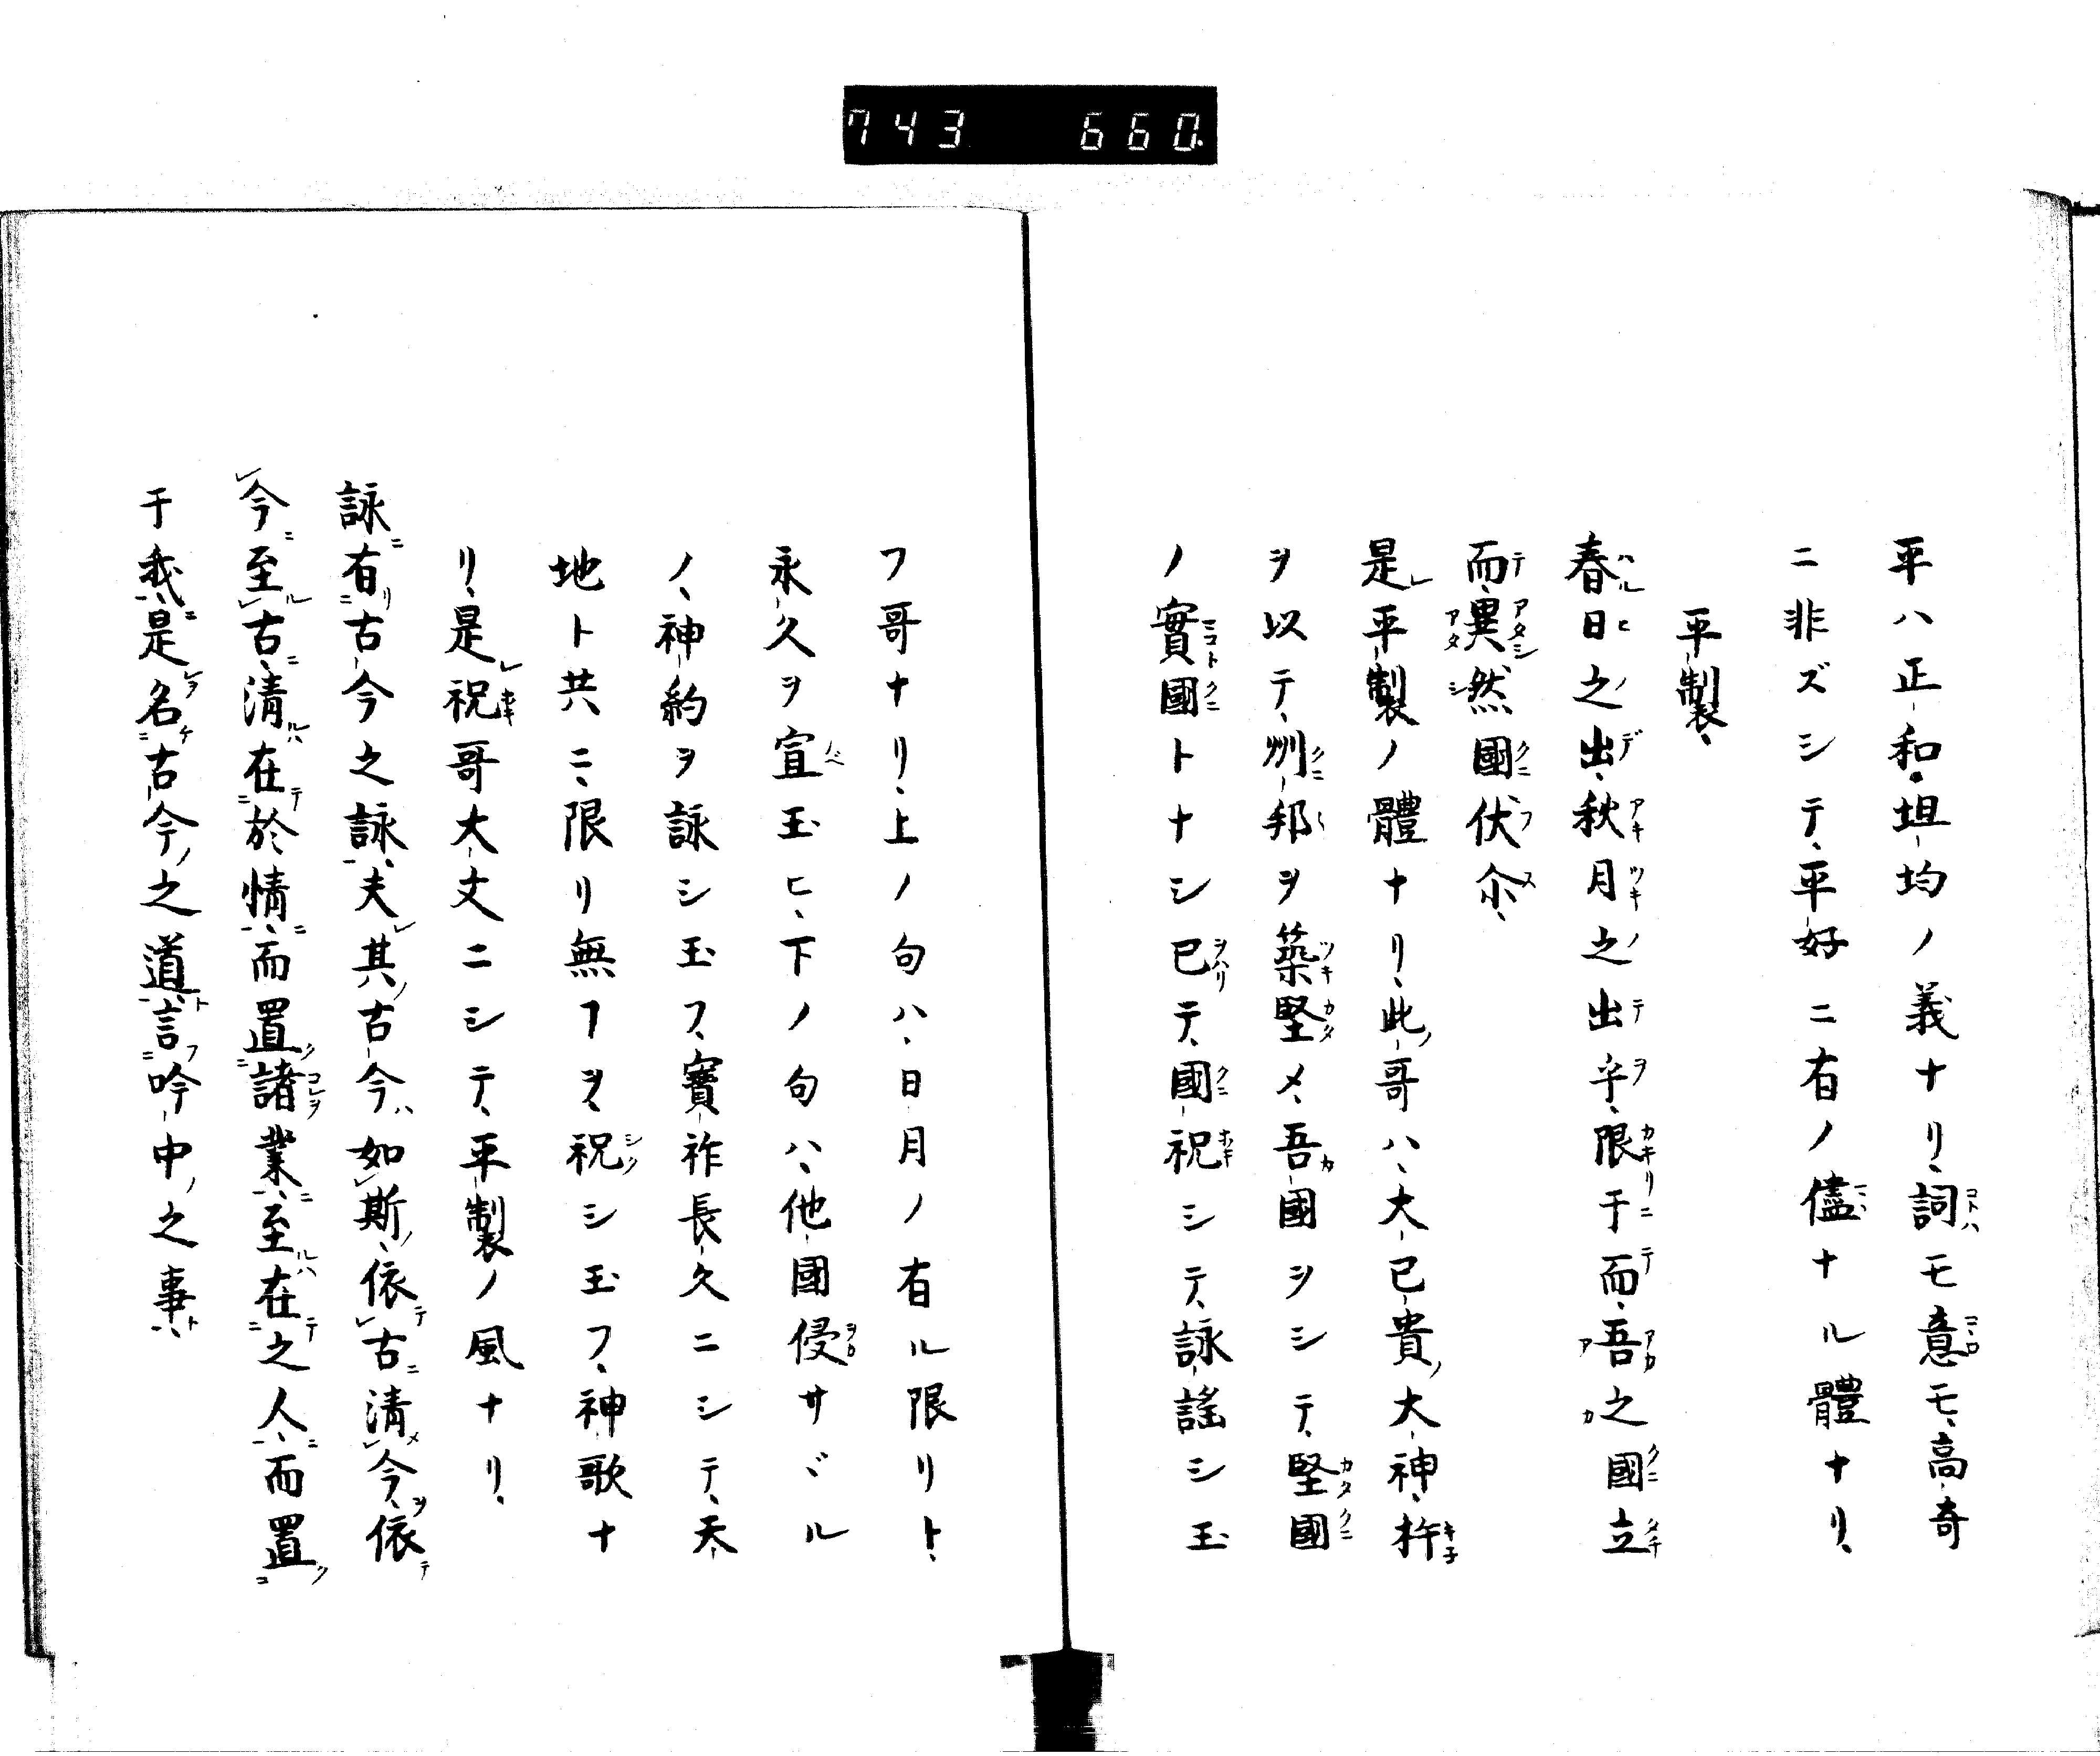 743 660.
平ハ正和坦均ノ義ナリ、詞モ意モ、高奇
ニ非ズシテ、平好ニ有ノ儘ナル體ナリ、
平製、
春日之出、秋月之出乎、限于而、吾之國立
而、異然國伏尒、
是平製ノ體ナリ、此哥ハ、大已貴大神、杵
ヲ以テ、州邦ヲ築堅メ、吾國ヲシテ、堅國
ノ實國トナシ已テ、國祝シテ、詠謠シ玉
フ哥ナリ、上ノ句ハ、日月ノ有ル限リト、
永久ヲ宣玉ヒ、下ノ句ハ、他國侵サヾル
ノ、神約ヲ詠シ玉フ、寶祚長久ニシテ、天
地ト共ニ、限リ無フヲ、祝シ玉フ、神歌ナ
リ、是祝哥大丈ニシテ、平製ノ風ナリ、
詠有古今之詠、夫其古今如斯、依古清今、依
今至古、清在於情、而置諸業、至在之人、而置
于我、是名古今之道、言吟中之事、